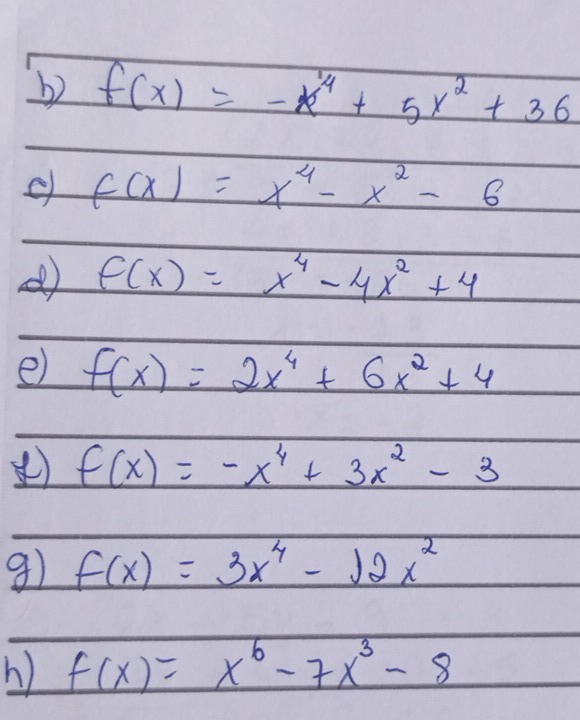 b) f(x) = -x⁴ + 5x² + 36
c) f(x) = x⁴ - x² - 6
d) f(x) = x⁴ - 4x² + 4
e) f(x) = 2x⁴ + 6x² + 4
f) f(x) = -x⁴ + 3x² - 3
g) f(x) = 3x⁴ - 12x²
h) f(x) = x⁶ - 7x³ - 8